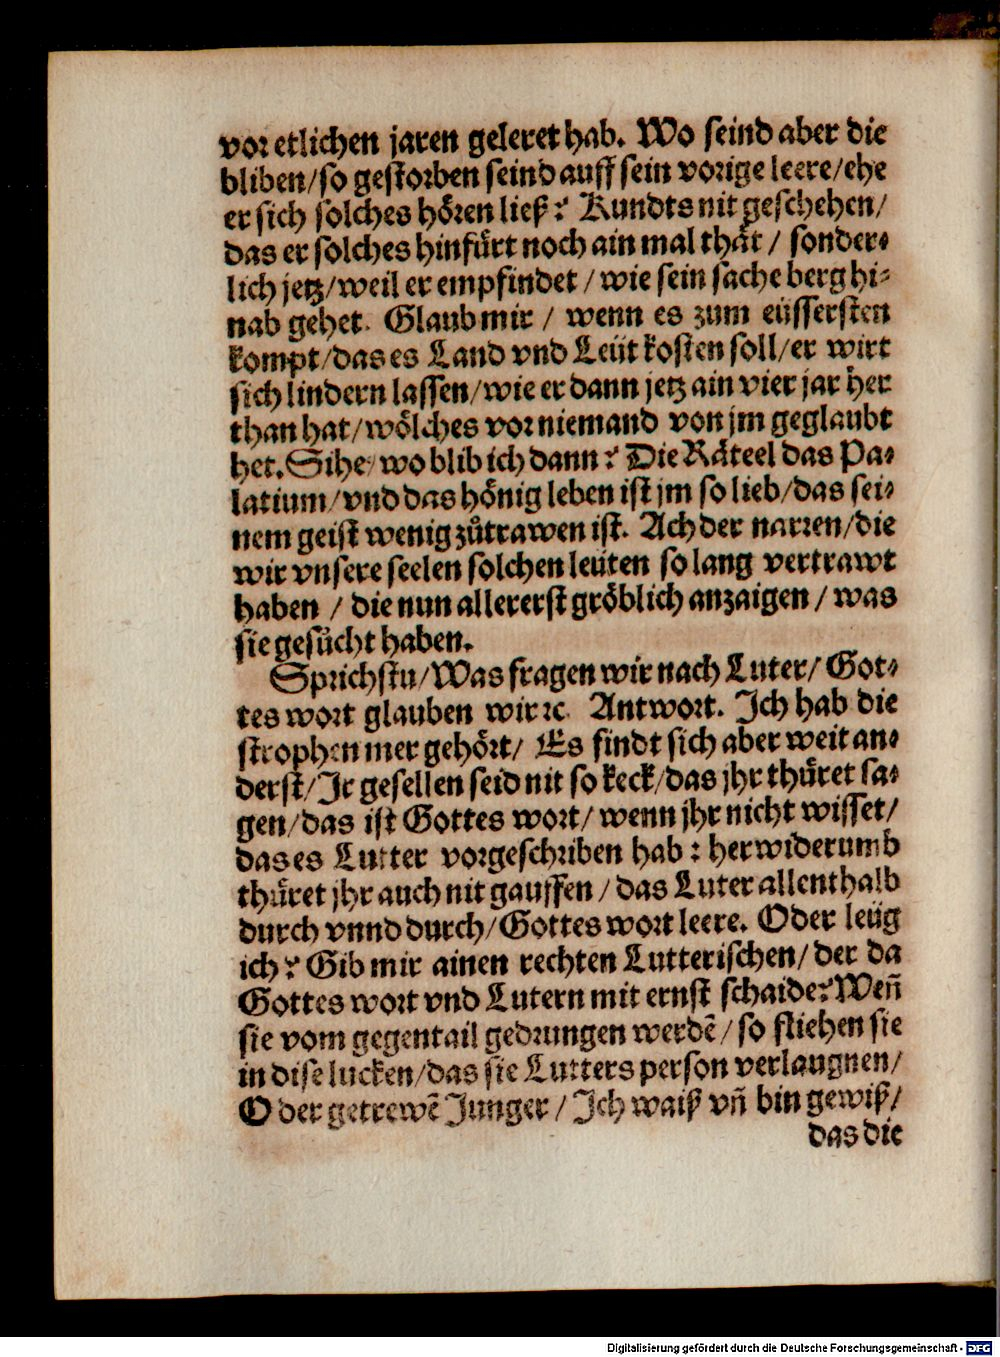 vor etlichen jaren geleret hab. Wo seind aber die
bliben/so gestorben seind auff sein vorige leere/ehe
er sich solches hören ließ? Kundts nit geschehen/
das er solches hinfürt noch ain mal thät / sonder⸗
lich jetz/weil er empfindet / wie sein sache berg hi⸗
nab gehet. Glaub mir / wenn es zum eüssersten
kompt/das es Land vnd Leüt kosten soll/er wirt
sich lindern lassen/wie er dann jetz ain vier jar her
than hat/wölches vor niemand von jm geglaubt
het. Sihe/wo blib ich dann? Die Räteel das Pa⸗
latium/vnd das hönig leben ist jm so lieb/das sei⸗
nem geist wenig zůtrawen ist. Ach der narren/die
wir vnsere seelen solchen leüten so lang vertrawt
haben / die nun allererst gröblich anzaigen / was
sie gesůcht haben.
Sprichstu/Was fragen wir nach Luter/ Got⸗
tes wort glauben wir ꝛc. Antwort. Ich hab die
strophen mer gehört/ Es findt sich aber weit an⸗
derst/Ir gesellen seid nit so keck/das jhr thüret sa⸗
gen/das ist Gottes wort/wenn jhr nicht wisset/
das es Lutter vorgeschriben hab : herwiderumb
thüret jhr auch nit gauffen / das Luter allenthalb
durch vnnd durch/Gottes wort leere. Oder leüg
ich? Gib mir ainen rechten Lutterischen/der da
Gottes wort vnd Lutern mit ernst schaide? Weñ
sie vom gegentail gedrungen werdẽ/so fliehen sie
in dise lucken/das sie Lutters person verlaugnen/
O der getrewẽ Junger / Ich waiß vñ bin gewiß/
das die
Digitalisierung gefördert durch die Deutsche Forschungsgemeinschaft - DFG